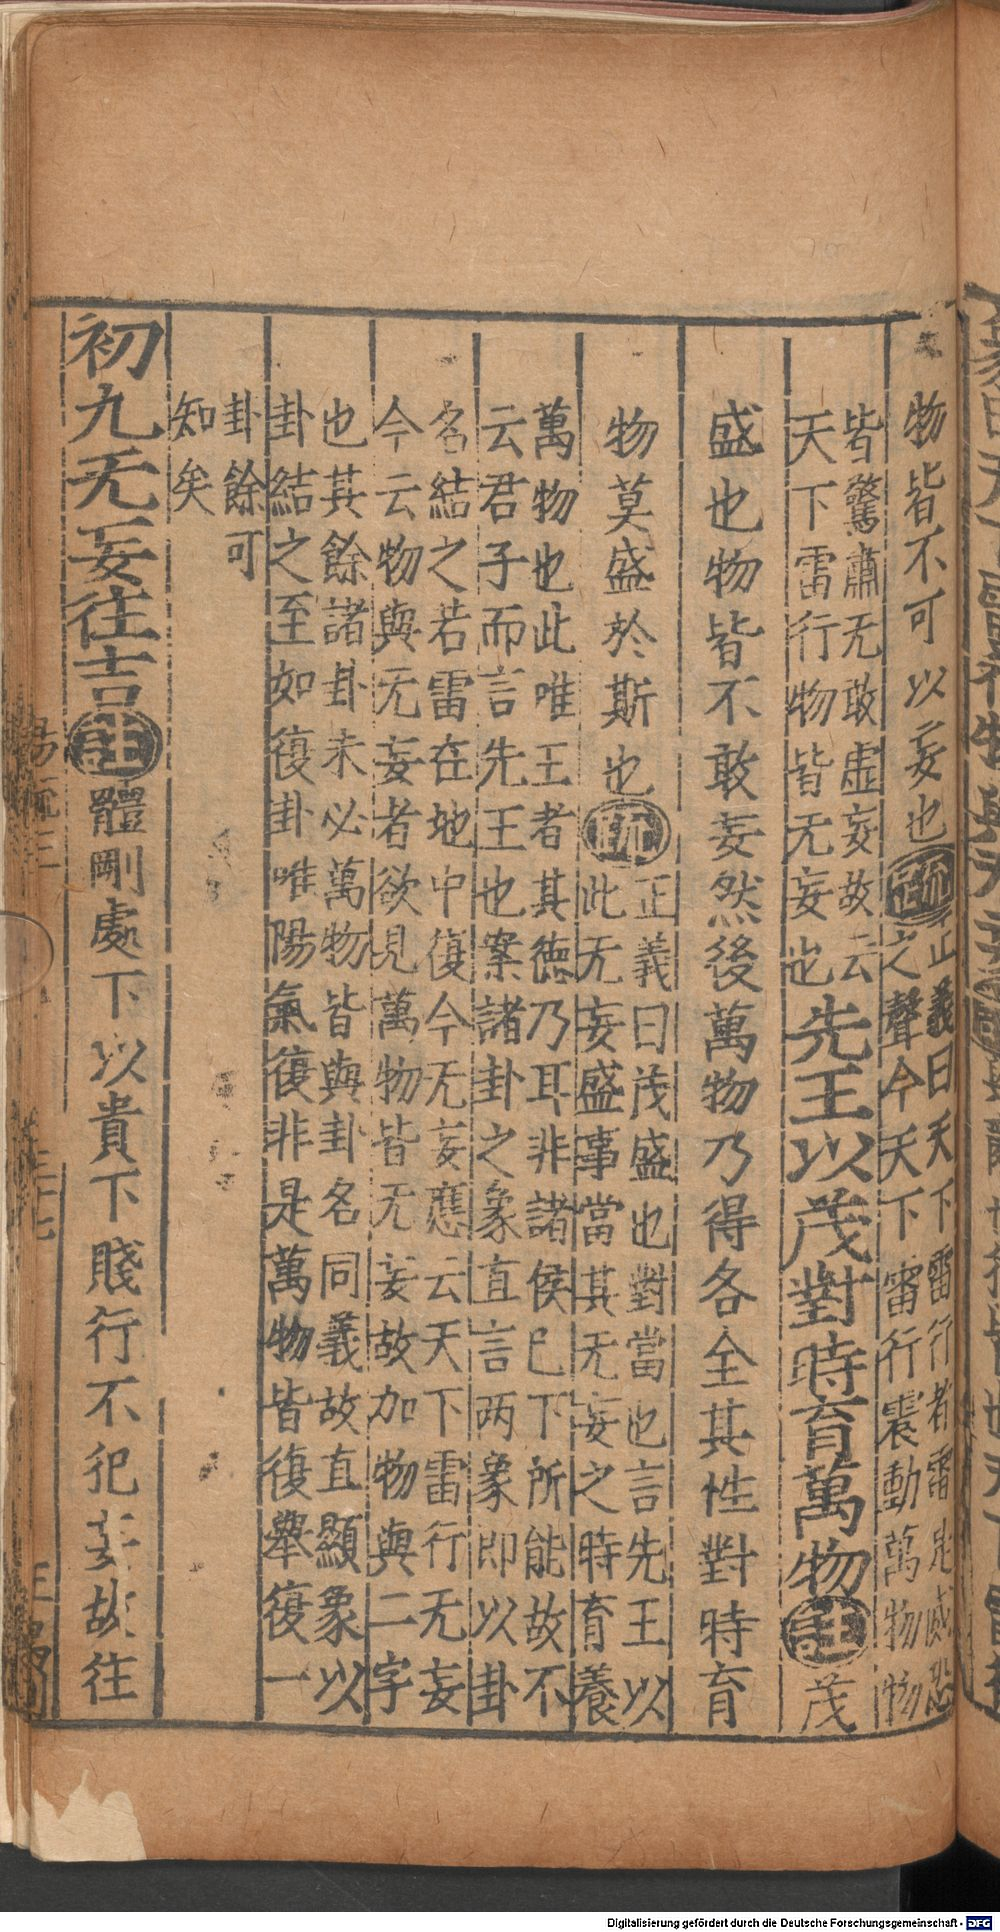 物皆不可以妄也疏正義曰天下雷行者雷是威恐
之聲今天下雷行震動萬物物
皆驚肅无敢虛妄故云
天下雷行物皆无妄也先王以茂對時育萬物註茂
盛也物皆不敢妄然後萬物乃得各全其性對時育
物莫盛於斯也疏正義曰茂盛也對當也言先王以
此无妄盛事當其无妄之時育養
萬物也此唯王者其德乃耳非諸侯已下所能故不
云君子而言先王也案諸卦之象直言两象即以卦
名結之若雷在地中復今无妄應云天下雷行无妄
今云物與无妄者欲見萬物皆无妄故加物與二字
也其餘諸卦未必萬物皆與卦名同義故直顯象以
卦結之至如復卦唯陽氣復非是萬物皆復舉復一
卦餘可
知矣
初九无妄往吉註體剛處下以貴下賤行不犯妄故往
易疏三
三十七
Digitalisierung gefördert durch die Deutsche Forschungsgemeinschaft - DFG